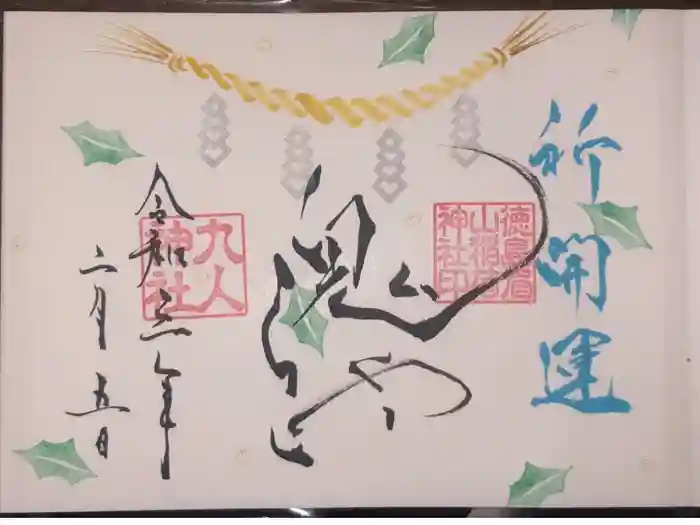 祈開運
徳島眉
山稲荷
神社印
鬼やらい
九人
神社
令和三年
二月五日